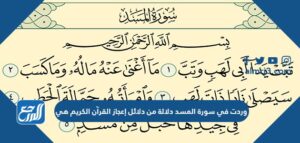 سُورَةُ المَسَدِ
بِسْمِ اللَّهِ الرَّحْمَٰنِ الرَّحِيمِ
أَبِي لَهَبٍ وَتَبَّ ١ مَا أَغْنَىٰ عَنْهُ مَالُهُ وَمَا كَسَبَ ٢
سَيَصْلَىٰ نَارًا ذَاتَ لَهَبٍ ٣ وَامْرَأَتُهُ حَمَّالَةَ الْحَطَبِ ٤
فِي جِيدِهَا حَبْلٌ مِّن مَّسَدٍ ٥
وردت في سورة المسد دلالة من دلائل إعجاز القرآن الكريم هي
المرجع